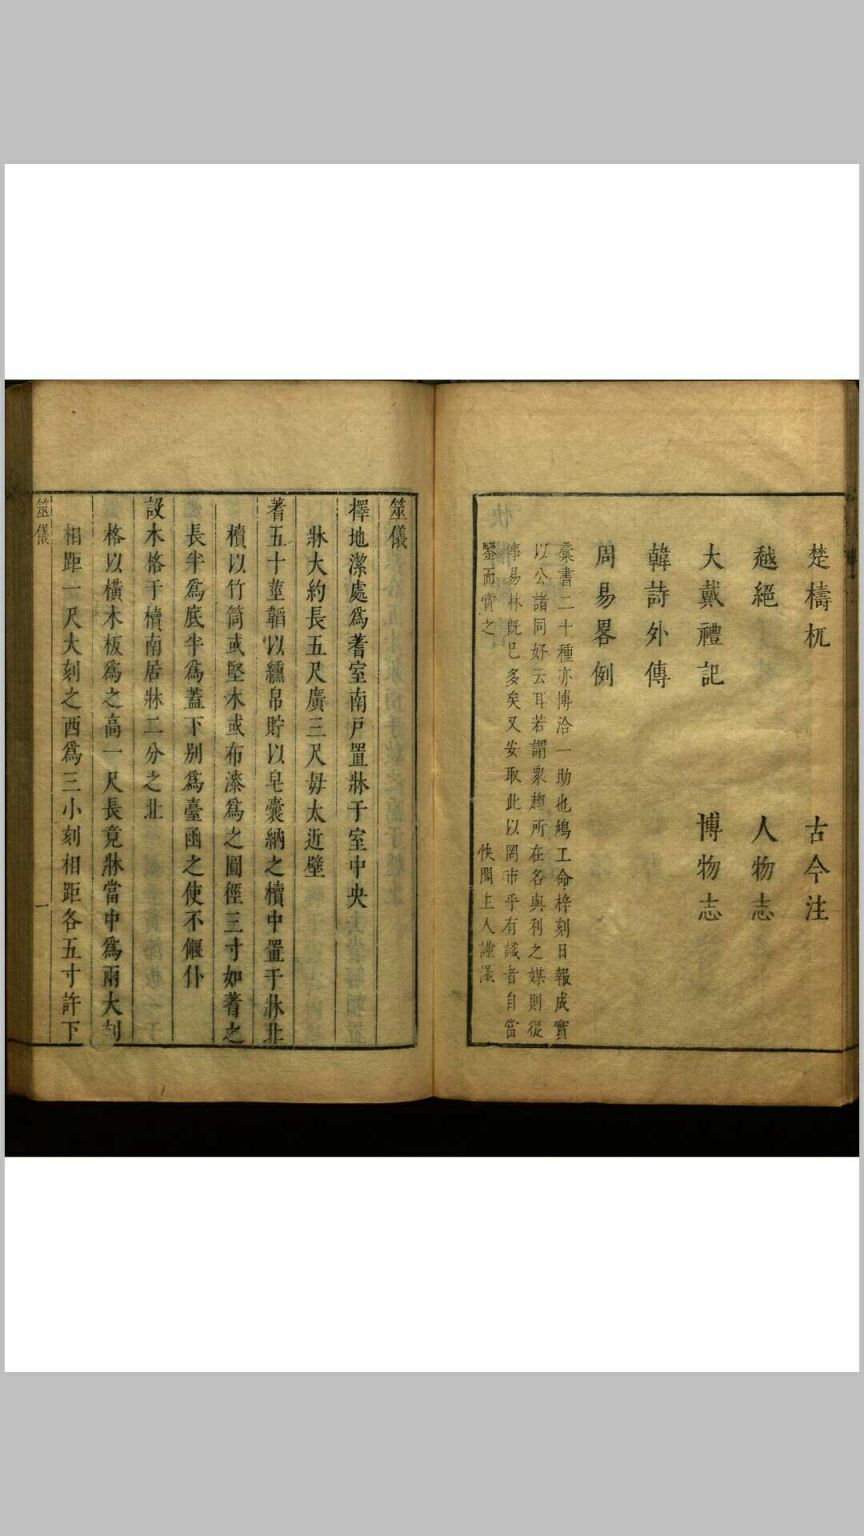 楚檮杌 古今注
越絕 人物志
大戴禮記 博物志
韓詩外傳
周易畧例
彙書二十種亦博洽一助也鳩工命梓刻日報成實
以公諸同好云耳若謂衆趨所在名與利之媒則從
事易林旣已多矣又安取此以罔市乎有識者自當
鑒而賞之 快閣主人謹識
筮儀
擇地潔處爲蓍室南戸置牀于室中央
牀大約長五尺廣三尺毋太近壁
蓍五十莖韜以纁帛貯以皂囊納之櫝中置于牀北
櫝以竹筒或堅木或布漆爲之圓徑三寸如蓍之
長半爲底半爲蓋下别爲臺函之使不偃仆
設木格于櫝南居牀二分之北
格以橫木板爲之高一尺長竟牀當中爲兩大刻
相距一尺大刻之西爲三小刻相距各五寸許下
筮儀 一